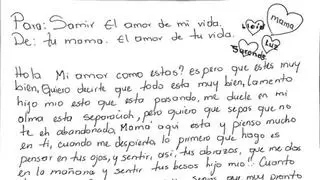 Para: Samir El amor de mi vida.
De: tu mama. El amor de tu vida.
mama
Luz
Hola Mi amor como estas? espero que estes muy
bien, Quiero decirte que todo esta muy bien, lamento
hijo mio esto que esta pasando, me duele en mi
alma esta separación, pero quiero que sepas que no
te eh abandonado, Mamá aqui esta y pienso mucho
en ti, cuando me despierto lo primero que hago es
pensar en tus ojos, y sentir, asi, tus abrazos, que me das
en la mañana y sentir tus besos hijo mio!! Cuanto
que muy pronto